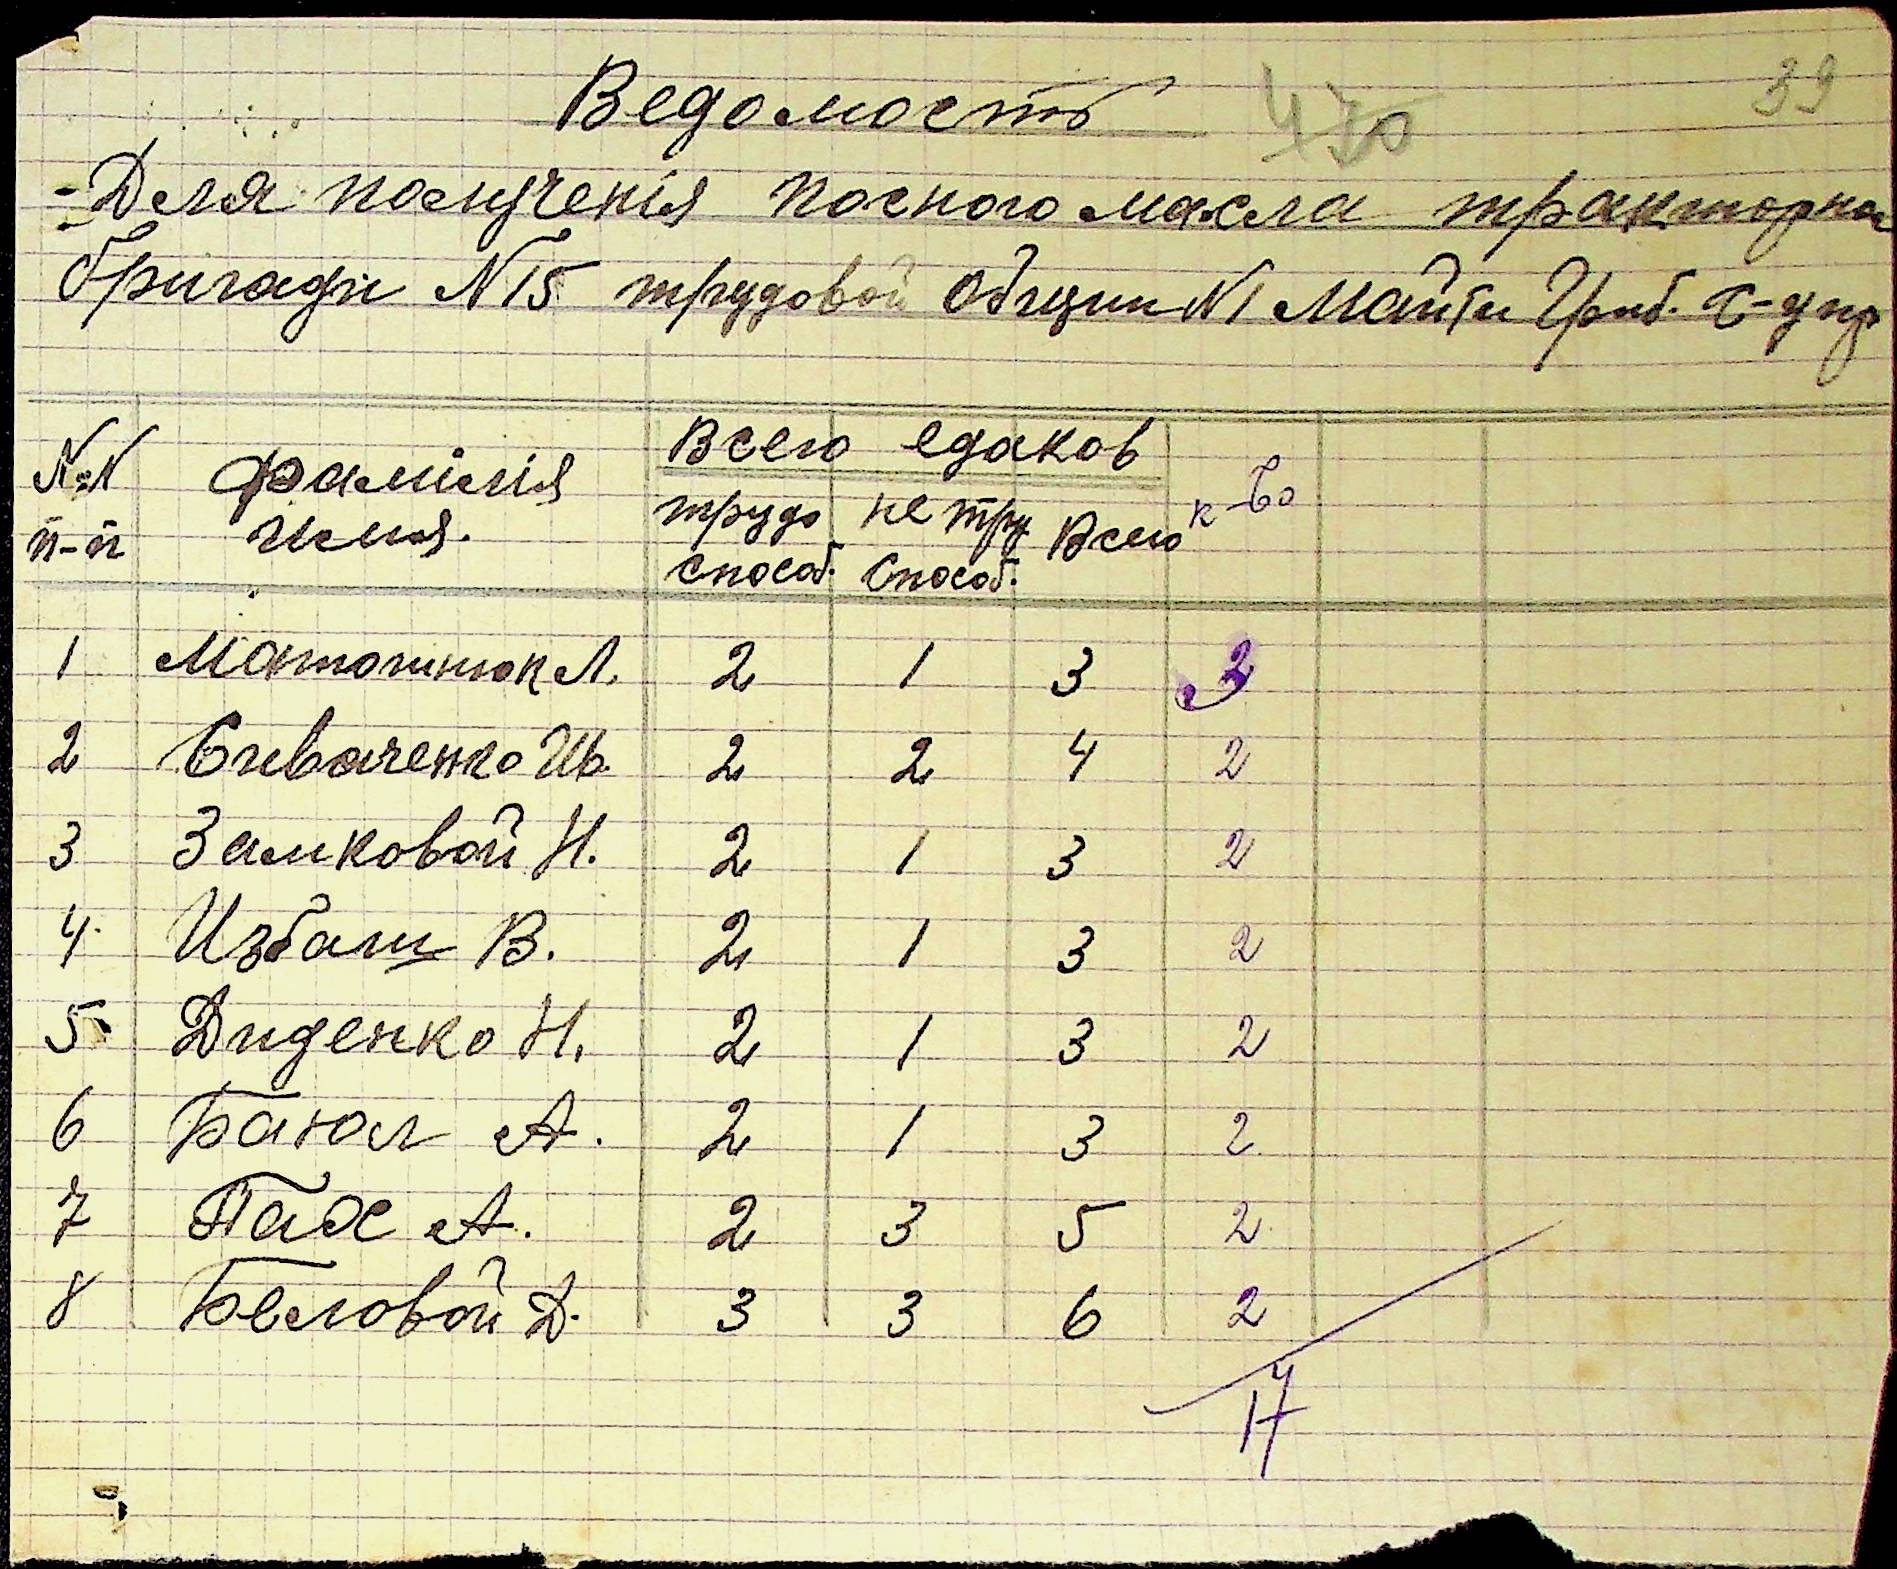 Ведомость 39
Для полученія посного масла тракторна
бригади N 15 трудовой Общин N1 Майби Гриб. С-упр
N:N Фамілія Всего едаков
п-п Имя. трудо не тру Всего к-во
способ. способ.
1 Матошнюк Л. 2 1 3 3
2 Сиваченко Ив. 2 2 4 2
3 Замковой Н. 2 1 3 2
4 Избаш В. 2 1 3 2
5 Диденко Н. 2 1 3 2
6 Баюл А. 2 1 3 2
7 Пас А. 2 3 5 2
8 Беловой Д. 3 3 6 2
17